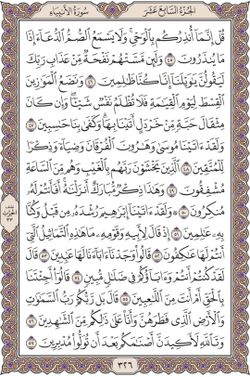 الجزء السابع عشر
سورة الأنبياء
قُلْ إِنَّمَآ أُنذِرُكُم بِٱلْوَحْىِ وَلَا يَسْمَعُ ٱلصُّمُّ ٱلدُّعَآءَ إِذَا
مَا يُنذَرُونَ ٤٥ وَلَئِن مَّسَّتْهُمْ نَفْحَةٌ مِّنْ عَذَابِ رَبِّكَ
لَيَقُولُنَّ يَٰوَيْلَنَآ إِنَّا كُنَّا ظَٰلِمِينَ ٤٦ وَنَضَعُ ٱلْمَوَٰزِينَ
ٱلْقِسْطَ لِيَوْمِ ٱلْقِيَٰمَةِ فَلَا تُظْلَمُ نَفْسٌ شَيْـًٔا وَإِن كَانَ
مِثْقَالَ حَبَّةٍ مِّنْ خَرْدَلٍ أَتَيْنَا بِهَا وَكَفَىٰ بِنَا حَٰسِبِينَ
٤٧ وَلَقَدْ ءَاتَيْنَا مُوسَىٰ وَهَٰرُونَ ٱلْفُرْقَانَ وَضِيَآءً وَذِكْرًا
لِّلْمُتَّقِينَ ٤٨ ٱلَّذِينَ يَخْشَوْنَ رَبَّهُم بِٱلْغَيْبِ وَهُم مِّنَ ٱلسَّاعَةِ
مُشْفِقُونَ ٤٩ وَهَٰذَا ذِكْرٌ مُّبَارَكٌ أَنزَلْنَٰهُ أَفَأَنتُمْ لَهُۥ
مُنكِرُونَ ٥٠ وَلَقَدْ ءَاتَيْنَآ إِبْرَٰهِيمَ رُشْدَهُۥ مِن قَبْلُ وَكُنَّا
بِهِۦ عَٰلِمِينَ ٥١ إِذْ قَالَ لِأَبِيهِ وَقَوْمِهِۦ مَا هَٰذِهِ ٱلتَّمَاثِيلُ ٱلَّتِىٓ
أَنتُمْ لَهَا عَٰكِفُونَ ٥٢ قَالُوا۟ وَجَدْنَآ ءَابَآءَنَا لَهَا عَٰبِدِينَ ٥٣ قَالَ
لَقَدْ كُنتُمْ أَنتُمْ وَءَابَآؤُكُمْ فِى ضَلَٰلٍ مُّبِينٍ ٥٤ قَالُوٓا۟ أَجِئْتَنَا
بِٱلْحَقِّ أَمْ أَنتَ مِنَ ٱللَّٰعِبِينَ ٥٥ قَالَ بَل رَّبُّكُمْ رَبُّ ٱلسَّمَٰوَٰتِ
وَٱلْأَرْضِ ٱلَّذِى فَطَرَهُنَّ وَأَنَا۠ عَلَىٰ ذَٰلِكُم مِّنَ ٱلشَّٰهِدِينَ
٥٦ وَتَٱللَّهِ لَأَكِيدَنَّ أَصْنَٰمَكُم بَعْدَ أَن تُوَلُّوا۟ مُدْبِرِينَ ٥٧
٣٢٦